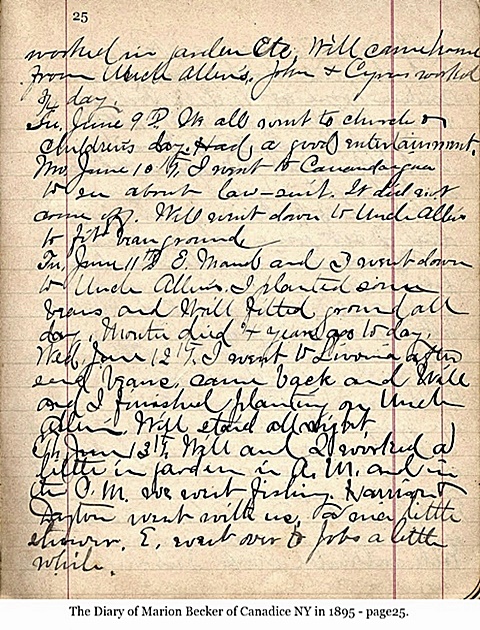 25
worked in garden etc, Will came home
from Uncle Allen's, John & Cyrus worked
3/4 day.
Su, June 9th We all went to church &
children's day. Had a good entertainment.
Mo, June 10th, I went to Canandaigua
to see about law-suit. It did not
come off. Will went down to Uncle Allens
to fit bean ground
Tu, June 11th E. Maud and I went down
to Uncle Allens. I planted some
beans, and Will fitted ground all
day, Mother died 4 years ago to day.
Wed, June 12th, I went to Livonia after
seed beans, came back and Will
and I finished planting on Uncle
Allen's, Will staid all night
Th, June 13th, Will and I worked a
little in garden in A.M. and in
the P.M. we went fishing. Harrison
Dayton went with us, a little
shower. E. went over to Job's a little
while.
The Diary of Marion Becker of Canadice NY in 1895 - page25.